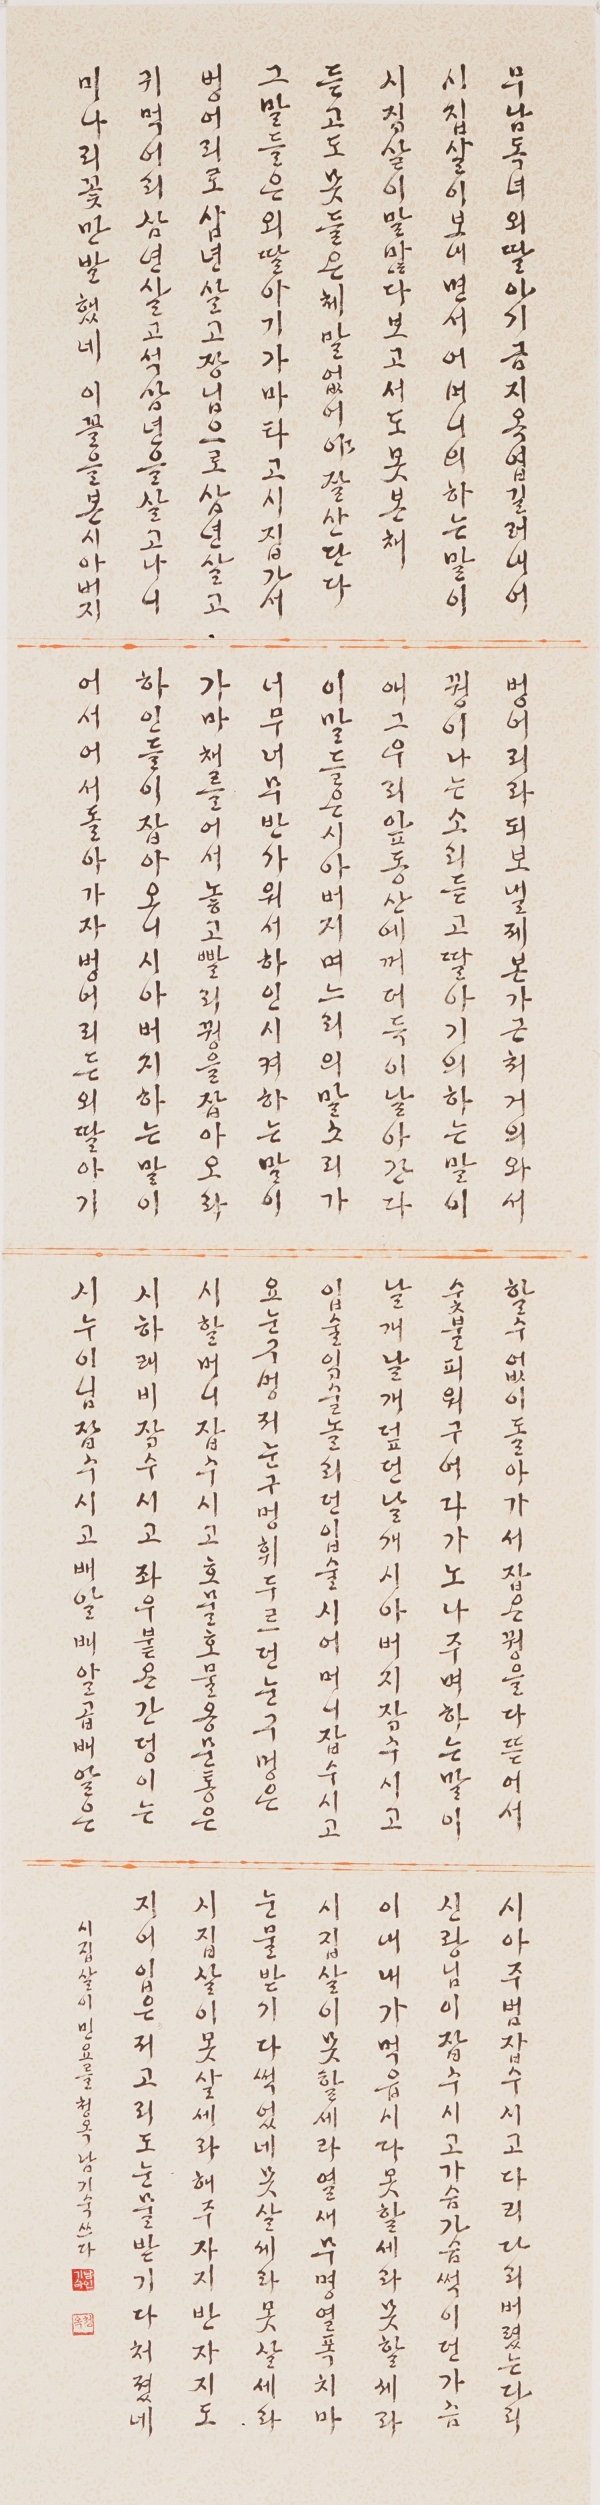 무남독녀외딸아기금지옥엽길러내어
시집살이보내면서어머니의하는말이
시집살이말많다보고서도못본채
듣고도못들은체말없어야잘산단다
그말들은외딸아기가마타고시집가서
벙어리로삼년살고장님으로삼년살고
귀먹어리삼년살고석삼년을살고나니
미나리꽃만발했네이꼴을본시아버지
벙어리라되보낼제본가근처거의와서
꿩이나는소리듣고딸아기의하는말이
애그우리앞동산에꺼더득이날아간다
이말들은시아버지며느리의말소리가
너무너무반가워서하인시켜하는말이
가마채를어서놓고빨리꿩을잡아오라
하인들이잡아오니시아버지하는말이
어서어서돌아가자벙어리든외딸아기
할수없이돌아가서잡은꿩을다뜯어서
숯불피워구어다가노나주며하는말이
날개날개덮던날개시아버지잡수시고
입술입술놀리던입술시어머니잡수시고
요눈구멍저눈구멍휘두르던눈구멍은
시할머니잡수시고호물호물옹문통은
시하래비잡수시고좌우붙은간덩이는
시누이님잡수시고배알배알곱배알은
시아주범잡수시고다리다리버렸는다리
신랑님이잡수시고가슴가슴썩이던가슴
이내내가먹읍시다못할세라못할세라
시집살이못할세라열새무명열폭치마
눈물받기다썩었네못살세라못살세라
시집살이못살세라해주자지반자지도
지어입은저고리도눈물받기다처졌네
시집살이민요를청옥남기숙쓰다